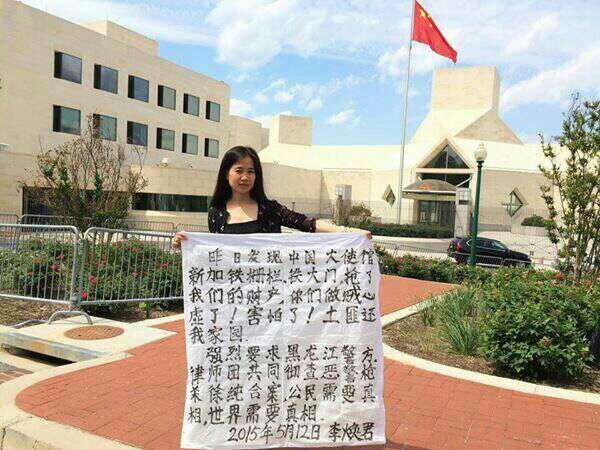 昨日发现,中国大使馆
新加 铁栅栏, 大门 了
我们的! 你们 做贼心
虚了! 害怕了! 土匪还
我家园.
强烈要求黑龙江警方
律师团共同彻查恶警枪
杀徐纯合案公民需要真
相,世界需要真相.
2015年5月12日 李焕君